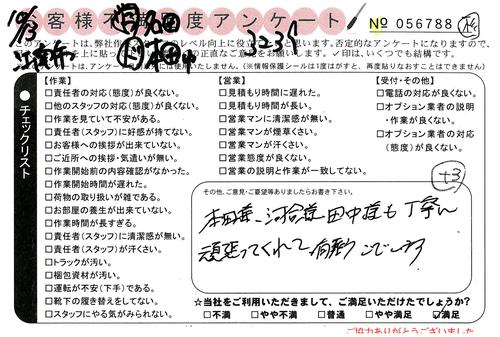 お客様不満足度アンケート
№ 056788
10/3
のアンケートは、弊社作
レベル向上に役立
と思います。否定的なアンケートになりますので、
の正直なご意見をお願い
✓印は、いくつでも結構です。
アンケート以外には使用いたしません。(※情報保護シールは1度はがすと、再度貼りなおすことはできません)
チェックリスト
【作業】
□責任者の対応(態度)が良くない。
□他のスタッフの対応(態度)が良くない。
□作業を見ていて不安がある。
□責任者(スタッフ)に好感が持てない。
□お客様への挨拶が出来ていない。
□ご近所への挨拶・気遣いが無い。
□作業開始前の内容確認がなかった。
□作業開始時間が遅れた。
□荷物の取り扱いが雑である。
□お部屋の養生が出来ていない。
□作業時間が長すぎる。
□責任者(スタッフ)に清潔感が無い。
□責任者(スタッフ)が汗くさい。
□トラックが汚い。
□梱包資材が汚い。
□運転が不安(下手)である。
□靴下の履き替えをしてない。
□スタッフにやる気がみられない。
【営業】
□見積もり時間に遅れた。
□見積もり時間が長い。
□営業マンに清潔感が無い。
□営業マンが煙草くさい。
□営業マンが汗くさい。
□営業態度が良くない。
□営業の説明と作業が一致してない。
【受付・その他】
□電話の対応が良くない。
□オプション業者の説明
・作業が良くない。
□オプション業者の対応
(態度)が良くない。
+3
その他、ご意見・ご要望等ありましたらお書き下さい。
本田様、河合様、田中様も丁寧に
頑張ってくれて有難うございます
☆当社をご利用いただきまして、ご満足いただけたでしょうか?
□不満 □やや不満 □普通 □やや満足 ☑満足
ご協力ありがとうございました